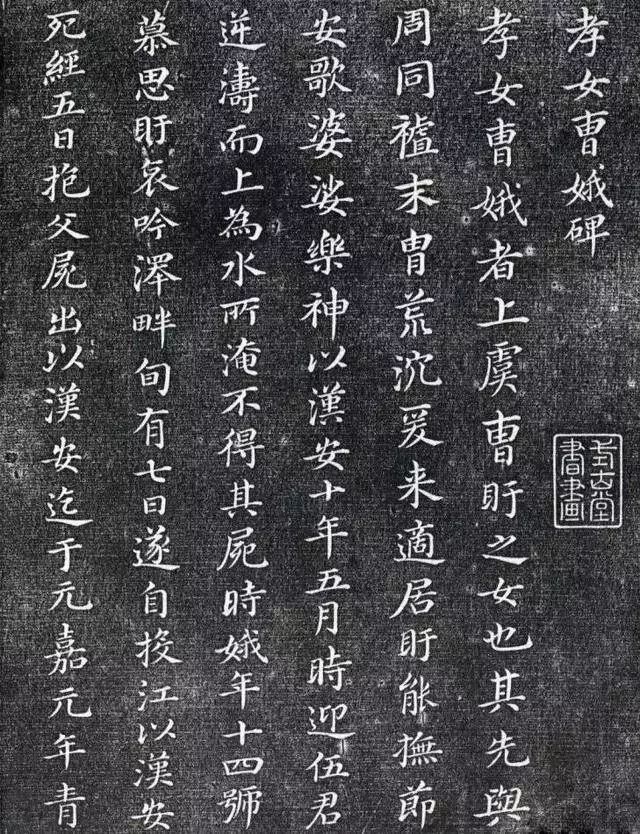 孝女曹娥碑
孝女曹娥者上虞曹盱之女也其先與
周同禮末胄荒沉爰来適居盱能撫節
安歌婆娑樂神以漢安十年五月時迎伍君
逆濤而上為水所淹不得其屍時娥年十四號
慕思盱哀吟澤畔旬有七日遂自投江以漢安
死經五日抱父屍出以漢安迄于元嘉元年青
書畫